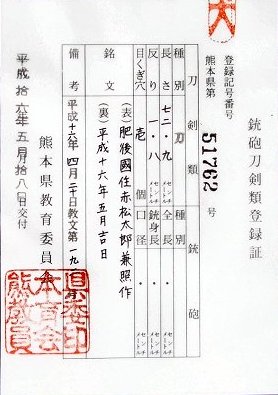 銃砲刀剣類登録証
登録記号番号
熊本県第 51762 号
刀剣類
銃砲
種別 刀
種別
長さ 七二・九 センチメートル
全長 ・ センチメートル
反り 一・八 センチメートル
銃身長 ・ センチメートル
目くぎ穴 壱個
口径 ・ センチメートル
銘文
(表) 肥後國住赤松太郎兼照作
(裏) 平成十六年五月吉日
備考
平成十六年四月二十日教文第一九
平成拾六年五月拾八日交付
熊本県教育委員会
熊本県教育委員会印
大